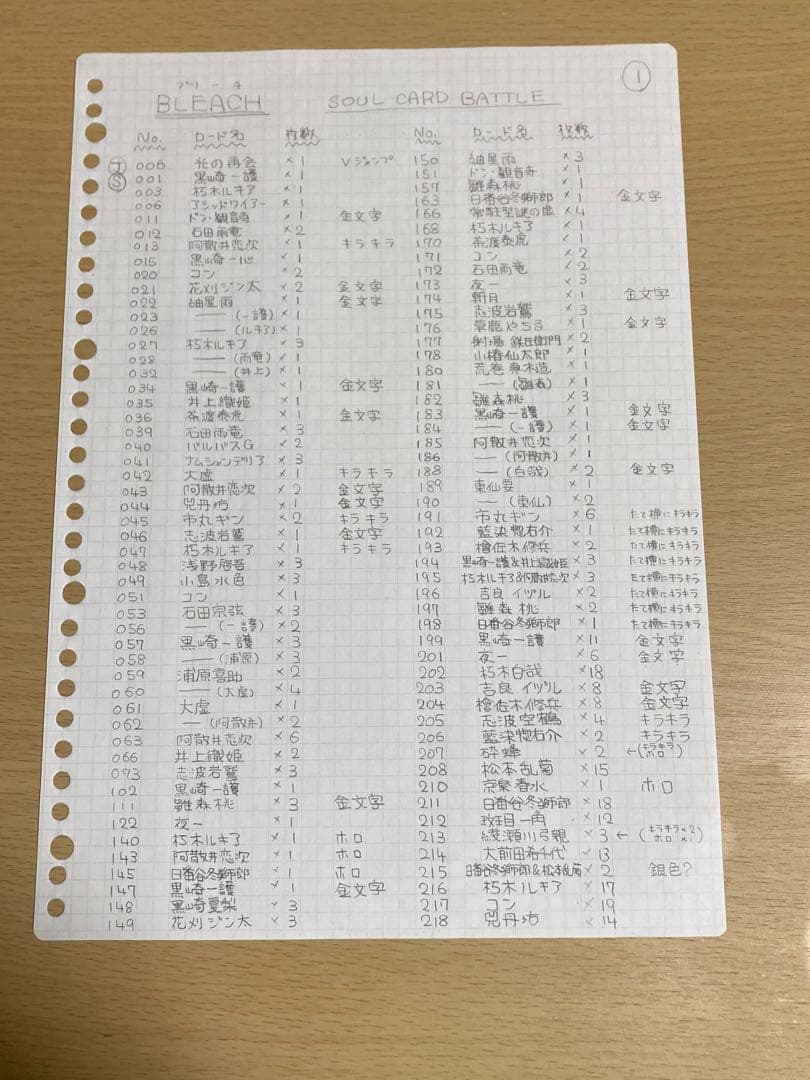 ①
ブリーチ
BLEACH SOUL CARD BATTLE
No. カード名 枚数
Ⓙ 000 光の再会 ×1 Vジャンプ
Ⓢ 001 黒崎一護 ×1
003 朽木ルキア ×1
006 アシッドワイヤー ×1
011 ドン・観音寺 ×1 金文字
012 石田雨竜 ×2
013 阿散井恋次 ×1 キラキラ
015 黒崎一心 ×1
020 コン ×2
021 花刈ジン太 ×2 金文字
022 紬屋雨 ×1 金文字
023 ―― (一護) ×1
026 ―― (ルキア) ×1
027 朽木ルキア ×3
028 ―― (雨竜) ×1
032 ―― (井上) ×1
034 黒崎一護 ×1 金文字
035 井上織姫 ×1
036 茶渡泰虎 ×1 金文字
039 石田雨竜 ×3
040 バルバスG ×2
041 ナムシャンデリア ×3
042 大虚 ×1 キラキラ
043 阿散井恋次 ×2 金文字
044 兕丹坊 ×1 金文字
045 市丸ギン ×2 キラキラ
046 志波岩鷲 ×1 金文字
047 朽木ルキア ×1 キラキラ
048 浅野啓吾 ×3
049 小島水色 ×3
051 コン ×1
053 石田宗弦 ×3
056 ―― (一護) ×2
057 黒崎一護 ×3
058 ―― (浦原) ×3
059 浦原喜助 ×2
060 ―― (大虚) ×4
061 大虚 ×1
062 ―― (阿散井) ×2
063 阿散井恋次 ×6
066 井上織姫 ×2
073 志波岩鷲 ×3
102 黒崎一護 ×1
111 雛森桃 ×3 金文字
122 夜一 ×1
140 朽木ルキア ×1 ホロ
143 阿散井恋次 ×1 ホロ
145 日番谷冬獅郎 ×1 ホロ
147 黒崎一護 ×1 金文字
148 黒崎夏梨 ×3
149 花刈ジン太 ×3
No. カード名 枚数
150 紬屋雨 ×3
151 ドン・観音寺 ×1
157 雛森桃 ×1
163 日番谷冬獅郎 ×1 金文字
166 常駐型謎の虚 ×4
168 朽木ルキア ×1
170 茶渡泰虎 ×1
171 コン ×2
172 石田雨竜 ×2
173 夜一 ×3
174 斬月 ×1 金文字
175 志波岩鷲 ×3
176 草鹿やちる ×1 金文字
177 射場 鉄左衛門 ×2
178 小椿仙太郎 ×1
180 荒巻真木造 ×1
181 ―― (雛森) ×1
182 雛森桃 ×3
183 黒崎一護 ×1 金文字
184 ―― (一護) ×1 金文字
185 阿散井恋次 ×1
186 ―― (阿散井) ×1
188 ―― (白哉) ×2 金文字
189 東仙要 ×1
190 ―― (東仙) ×2
191 市丸ギン ×6 たて横にキラキラ
192 藍染惣右介 ×1 たて横にキラキラ
193 檜佐木修兵 ×2 たて横にキラキラ
194 黒崎一護&井上織姫 ×3 たて横にキラキラ
195 朽木ルキア&阿散井恋次 ×3 たて横にキラキラ
196 吉良イヅル ×2 たて横にキラキラ
197 雛森桃 ×2 たて横にキラキラ
198 日番谷冬獅郎 ×1 たて横にキラキラ
199 黒崎一護 ×11 金文字
201 夜一 ×6 金文字
202 朽木白哉 ×18
203 吉良イヅル ×8 金文字
204 檜佐木修兵 ×8 金文字
205 志波空鶴 ×4 キラキラ
206 藍染惣右介 ×2 キラキラ
207 砕蜂 ×2
208 松本乱菊 ×15
210 京楽春水 ×1 ホロ
211 日番谷冬獅郎 ×18
212 斑目一角 ×12
213 綾瀬川弓親 ×3 ←(キラキラ×2 ホロ×1)
214 大前田希千代 ×13
215 日番谷冬獅郎&松本乱菊 ×2 銀色?
216 朽木ルキア ×17
217 コン ×19
218 兕丹坊 ×14